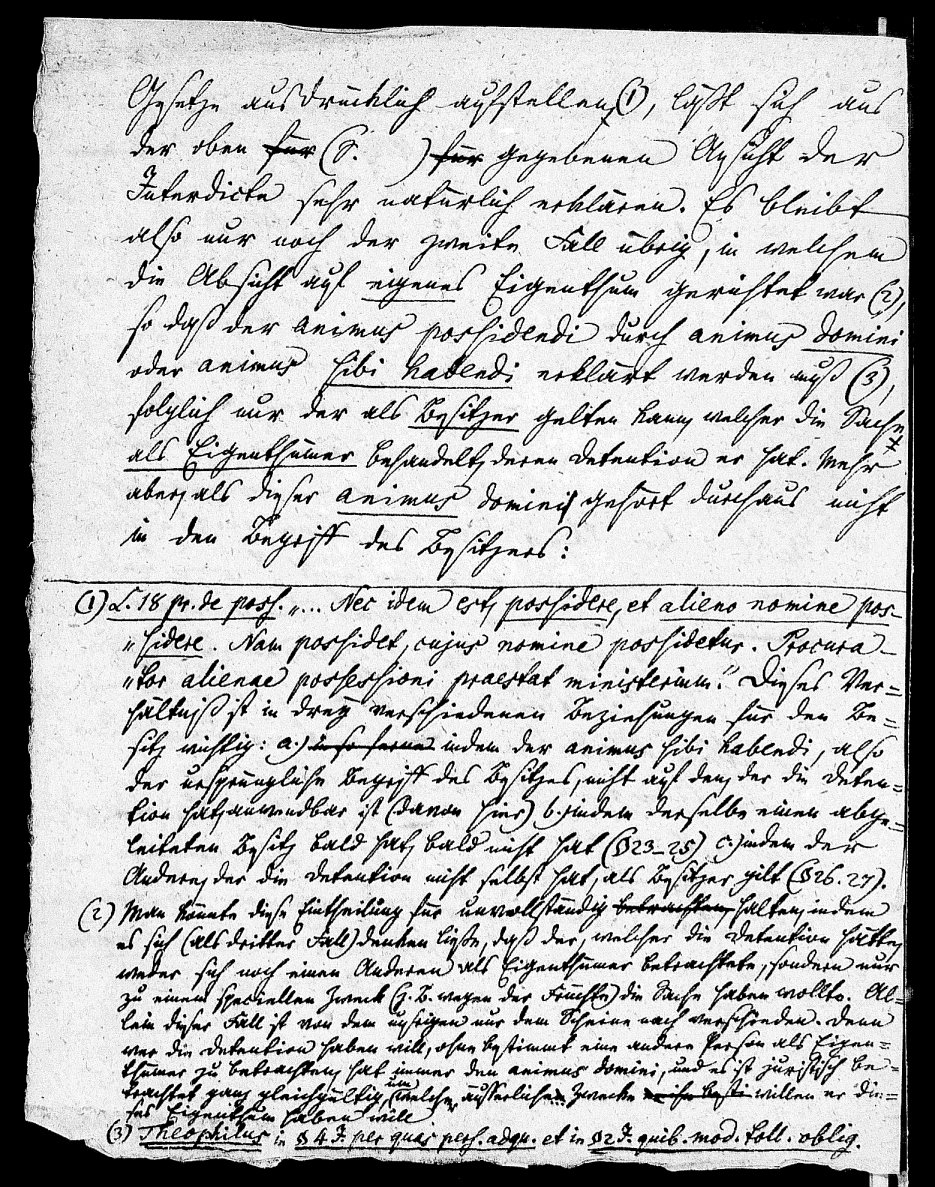 Gesetze ausdrücklich aufstellen (1), läßt sich aus
der oben für (S. ) für gegebenen Ansicht der
Interdicte sehr natürlich erklären. Es bleibt
also nur noch der zweite Fall übrig, in welchem
die Absicht auf eigenes Eigenthum gerichtet war (2),
so daß der animus possidendi durch animus domini
oder animus sibi habendi erklärt werden muß (3),
folglich nur der als Besitzer gelten kann, welcher die Sache
als Eigenthümer behandelt, deren Detention er hat. Mehr
aber, als dieser animus domini gehört durchaus nicht
in den Begriff des Besitzers:
(1) L. 18 pr. de poss. „... Nec idem est, possidere, et alieno nomine pos-
„sidere. Nam possidet, cujus nomine possidetur. Procura-
„tor alienae possessioni praestat ministerium.“ Dieses Ver=
hältniß ist in drey verschiedenen Beziehungen für den Be=
sitz wichtig: a.) in so ferne indem der animus sibi habendi, also
der ursprüngliche Begriff des Besitzes, nicht auf den, der die Deten=
tion hat, anwendbar ist (davon hier) b.) indem derselbe einen abge=
leiteten Besitz bald hat, bald nicht hat (§23-25) c.) indem der
Andere, der die Detention nicht selbst hat, als Besitzer gilt (§26. 27).
(2) Man könnte diese Eintheilung für unvollständig betrachten, halten, indem
es sich (als dritter Fall) denken ließe, daß der, welcher die Detention hätte,
weder sich noch einen Anderen als Eigenthümer betrachtete, sondern nur
zu einem speciellen Zweck (z. B. wegen der Früchte) die Sache haben wollte. Al=
lein dieser Fall ist von dem unsrigen nur dem Scheine nach verschieden. Denn
wer die Detention haben will, ohne bestimmt eine andere Person als Eigen=
thümer zu betrachten, hat immer den animus domini, und es ist juristisch be=
trachtet ganz gleichgültig, um welcher äusserlichen Zwecke willen er die=
ses Eigenthum haben will
(3) Theophilus in § 4 J. per quas pers. adqu. et in § 2 J. quib. mod. toll. oblig.